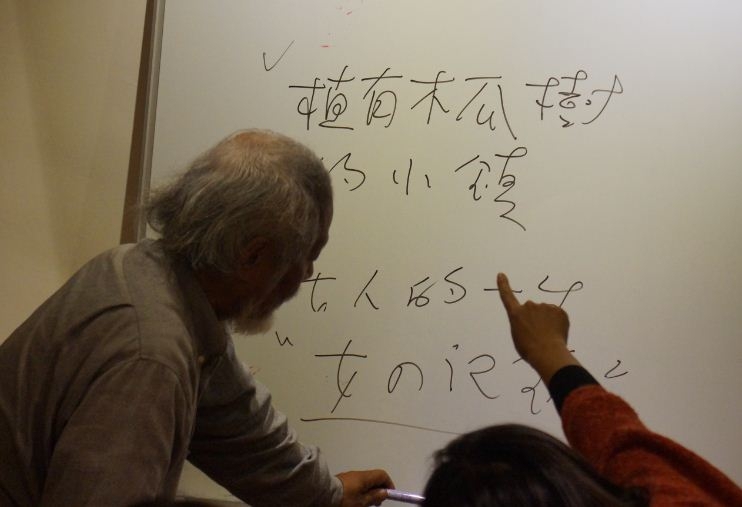 植有木瓜樹
的小鎮
女人的一
"女の記